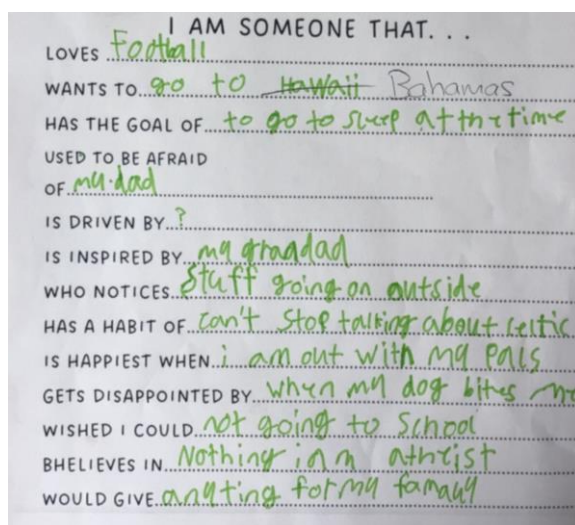 I AM SOMEONE THAT...
LOVES Football
WANTS TO go to Hawaii Bahamas
HAS THE GOAL OF to go to sleep at the time
USED TO BE AFRAID
OF my dad
IS DRIVEN BY ?
IS INSPIRED BY my grandad
WHO NOTICES Stuff going on outside
HAS A HABIT OF can't stop talking about celtic
IS HAPPIEST WHEN i am out with my pals
GETS DISAPPOINTED BY when my dog bites me
WISHED I COULD not going to school
BHELIEVES IN Nothing im atheist
WOULD GIVE anyting for my famaly